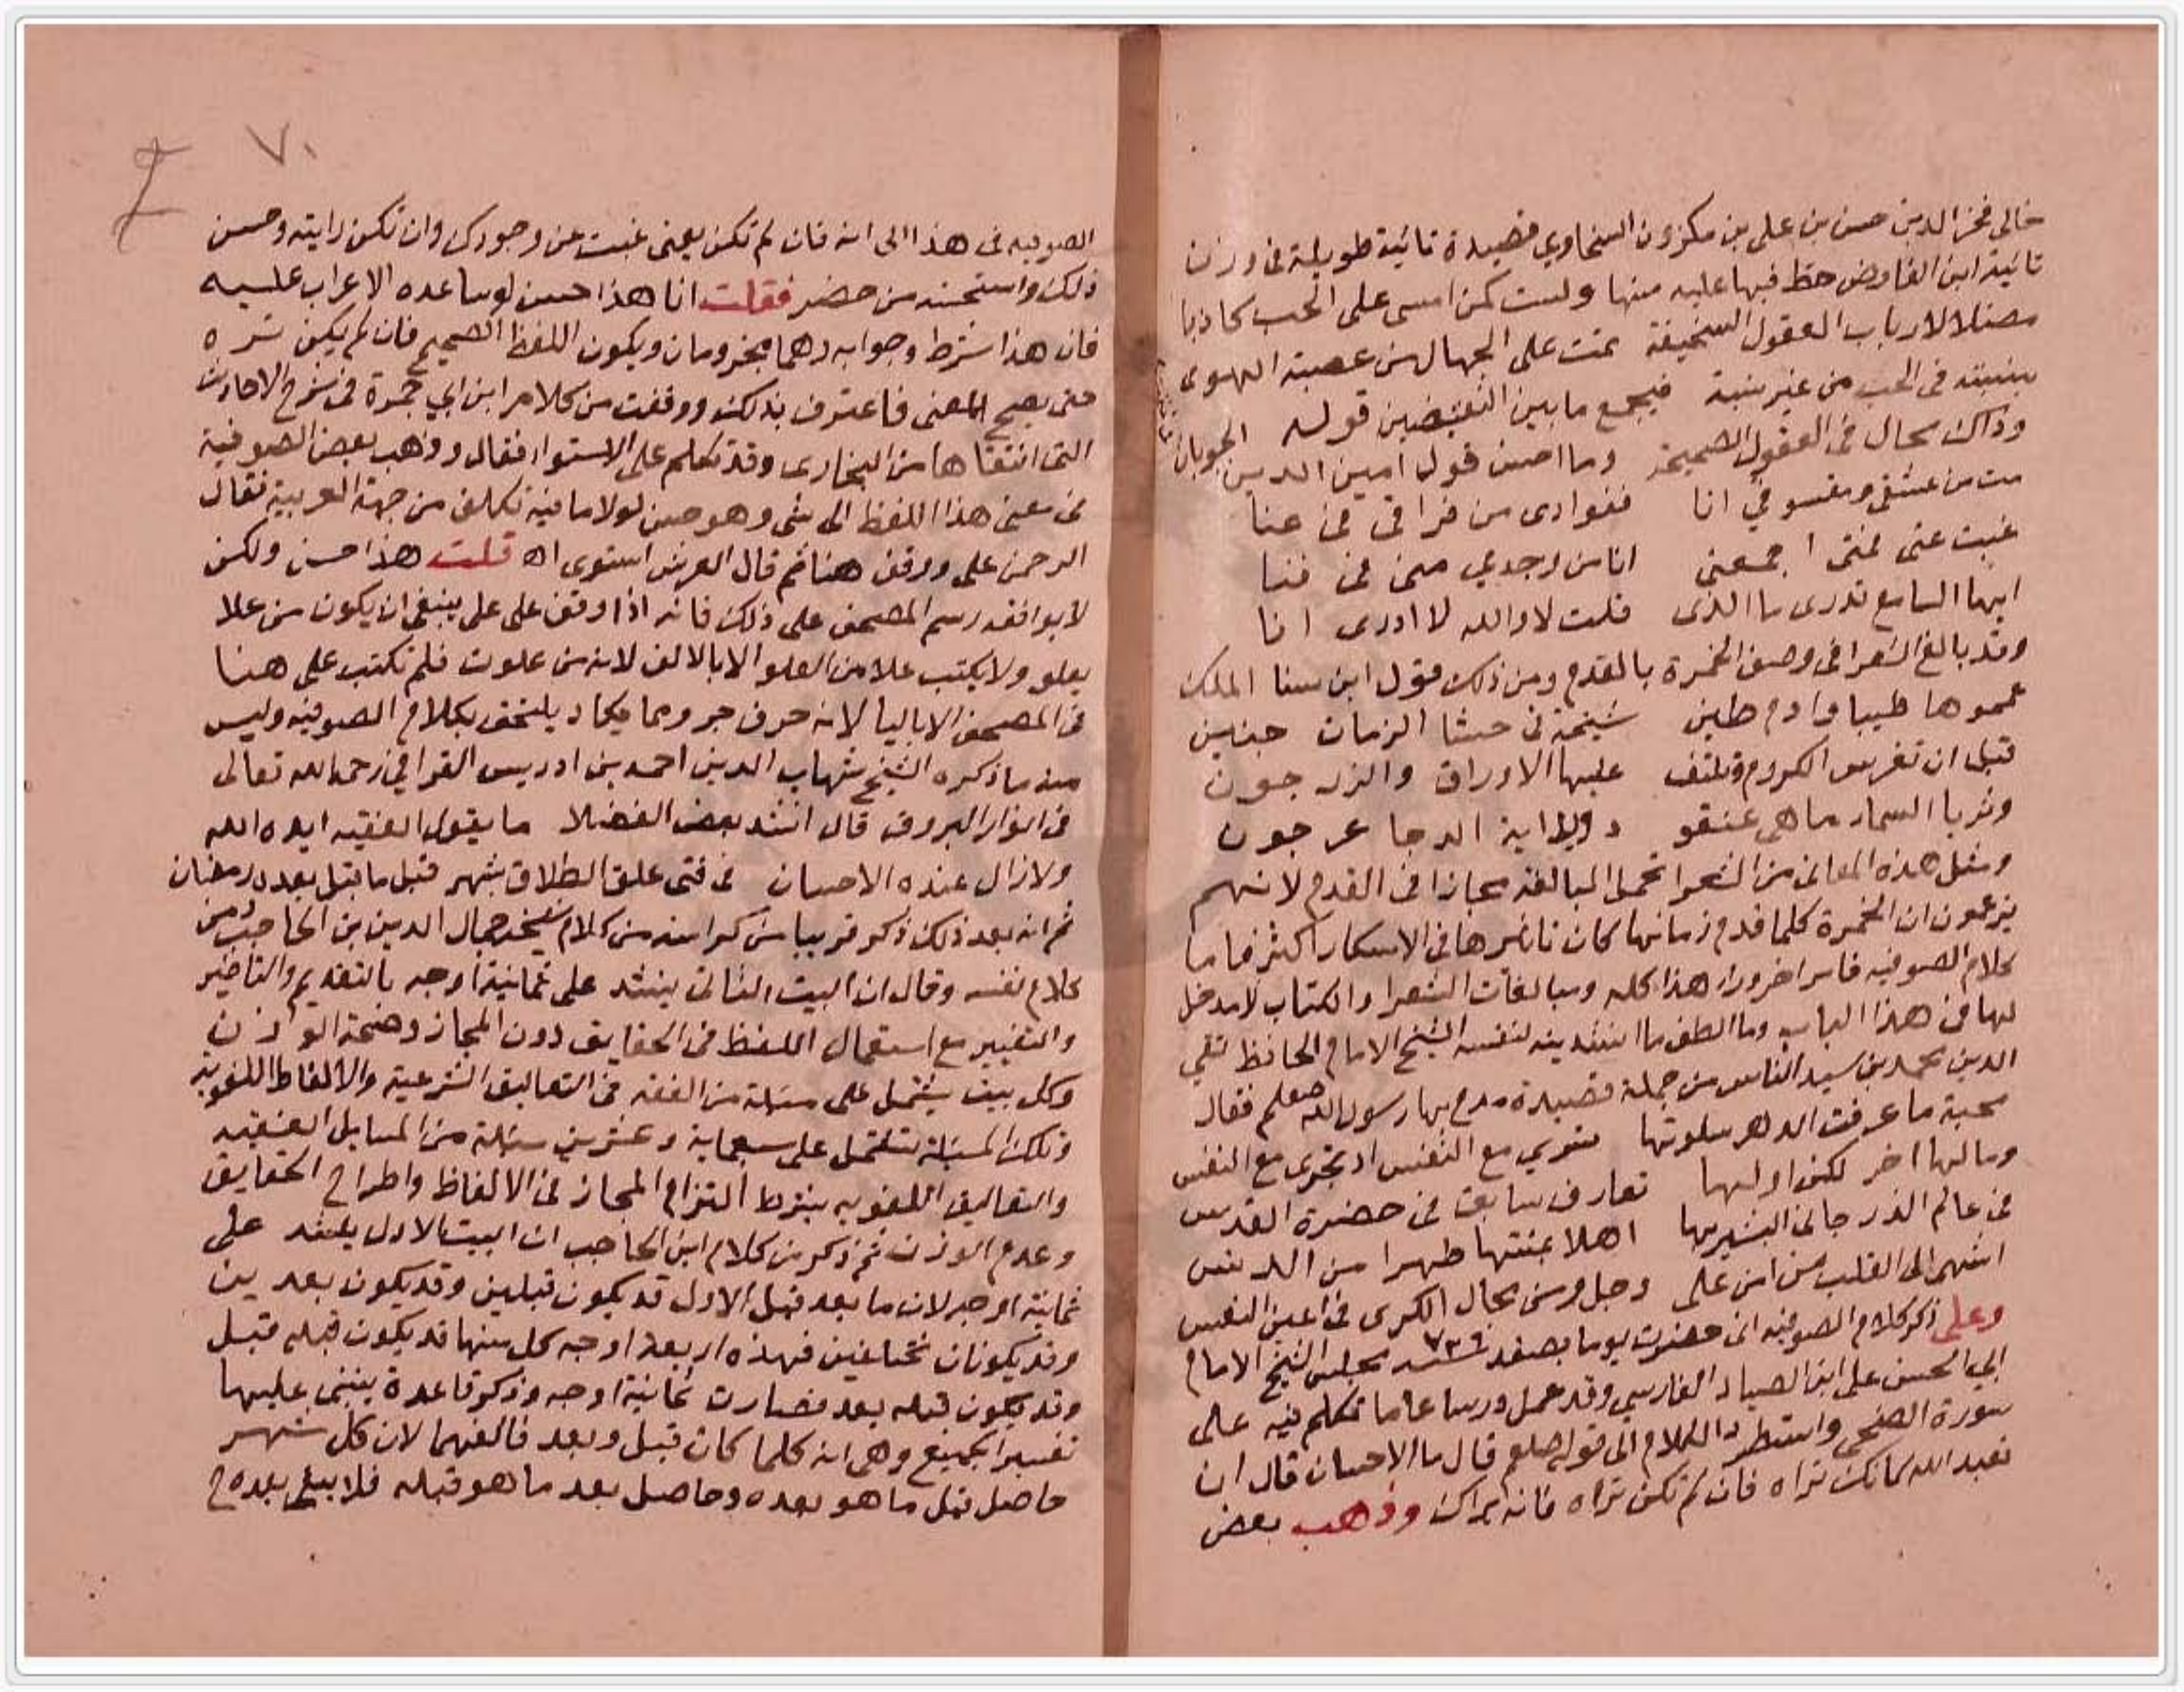 خالى فخر الدين حسن بن على بن مكزون السنجاوي قصيدة تائية طويلة فى وزن
تائية ابن الفارض حظ فيها عليه منها ولست كمن امسى على الحب كاذبا
مضلا لارباب العقول السخيفة تمت على الجهال من عصبة الهوى
بنسبته فى الحب من غير نسبة فيجمع ما بين النقيضين قوله
وذاك محال فى العقول الصحيحة وما احسن قول امين الدين الجوبان
مت من عشقى ومعشوقي انا ففوادى من فراقى فى عنا
غبت عنى فمتى اجمعنى انا من وجدي منى فى فنا
ايها السامع تدرى ما الذى قلت لا والله لا ادرى انا
وقد بالغ الشعرا فى وصف الخمرة بالقدم ومن ذلك قول ابن سنا الملك
عموها طيبا وادم طين شيخة فى حشا الزمان جنين
قبل ان تغرس الكروم وتلتف عليها الاوراق والزرجون
وثريا السما ما هى عنقو د ولا اية الدجا عرجون
ومثل هذه المعانى من الشعرا تحمل المبالغة مجازا فى القدم لانهم
يزعمون ان الخمرة كلما قدم زمانها كان تاثيرها فى الاسكار اكثر فاما
كلام الصوفيه فامر اخر وراء هذا كله ومبالغات الشعرا والكتاب لا مدخل
لها فى هذا الباب وما الطف ما انشدينه لنفسه الشيخ الامام الحافظ تقي
الدين محمد بن سيد الناس من جملة قصيدة مدح بها رسول الله صلعم فقال
محبة ما عرفت الدهر سلوتها ستوي مع النفس او تجرى مع النفس
وما لها اخر لكن اولها تعارف سابق فى حضرة القدس
فى عالم الذر جانى البشير بها اهلا بمنتها طهرا من الدنس
اشهى الى القلب من امن على وجل ومن مجال الكرى فى اعين النعس
وعلى ذكر كلام الصوفيه انى حضرت يوما بصفد سنة مجلس الشيخ الامام
ابي الحسن على ابن الصياد الفارسي وقد عمل درسا عاما تكلم فيه على
سورة الضحى واستطرد الكلام الى قوله صلعم قال ما الاحسان قال ان
تعبد الله كانك تراه فان لم تكن تراه فانه يراك وذهب بعض
٧٠
الصوفيه فى هذا الى انه فان لم تكن يعنى غبت عن وجودك وان تكن رايته وحسن
ذلك واستحسنه من حضر فقلت انا هذا حسن لو ساعده الاعراب عليه
فان هذا شرط وجوابه وهما مجزومان ويكون اللفظ الصحيح فان لم يكن تره
حتى يصح المعنى فاعترف بذلك ووقفت من كلام ابن ابي جمرة فى شرح الاحاديث
التى انتقاها من البخارى وقد تكلم على الاستواء فقال وذهب بعض الصوفية
فى معنى هذا اللفظ الى شى وهو حسن لولا ما فيه تكلف من جهة العربية فقال
الرحمن على ووقف هنا ثم قال العرش استوى اه قلت هذا حسن ولكن
لا يوافقه رسم المصحف على ذلك فانه اذا وقف على على ينبغى ان يكون من علا
يعلو ولا يكتب علا من العلو الا بالالف لانه من علوت فلم تكتب على هنا
فى المصحف الا باليا لانه حرف جر ومما يكاد يلتحق بكلام الصوفيه وليس
منه ما ذكره الشيخ شهاب الدين احمد بن ادريس القرافي رحمه الله تعالى
فى انوار البروق قال انشد بعض الفضلا ما يقول الفقيه ايده الله
ولازال عنده الاحسان فى فتى علق الطلاق بشهر قبل ما قبل بعده رمضان
ثم انه بعد ذلك ذكر قريبا من كراسه من كلام شيخه جمال الدين بن الحاجب ومن
كلام نفسه وقال ان البيت الثانى ينشد على ثمانية اوجه بالتقديم والتاخير
والتغيير مع استعمال اللفظ فى الحقايق دون المجاز وصحة الوزن
وكل بيت يشتمل على مسئلة من الفقه فى التعاليق الشرعية والالفاظ اللغوية
وتلك المسئلة تشتمل على سبعماية وعشرين مسئلة من المسايل الفقهيه
والتعاليق اللغويه بشرط التزام المجاز فى الالفاظ واطراح الحقايق
وعدم الوزن ثم ذكر من كلام ابن الحاجب ان البيت الاول ينشد على
ثمانية اوجه لان ما بعد قبل الاول قد يكون قبلين وقد يكون بعدين
وقد يكونان مختلفين فهذه اربعة اوجه كل منها قد يكون قبله قبل
وقد يكون قبله بعد فصارت ثمانية اوجه وذكر قاعدة ينبنى عليها
تفسير الجميع وهى انه كلما كان قبل وبعد فالغهما لان كل شهر
حاصل قبل ما هو بعده وحاصل بعد ما هو قبله فلا يبقى بعده ح